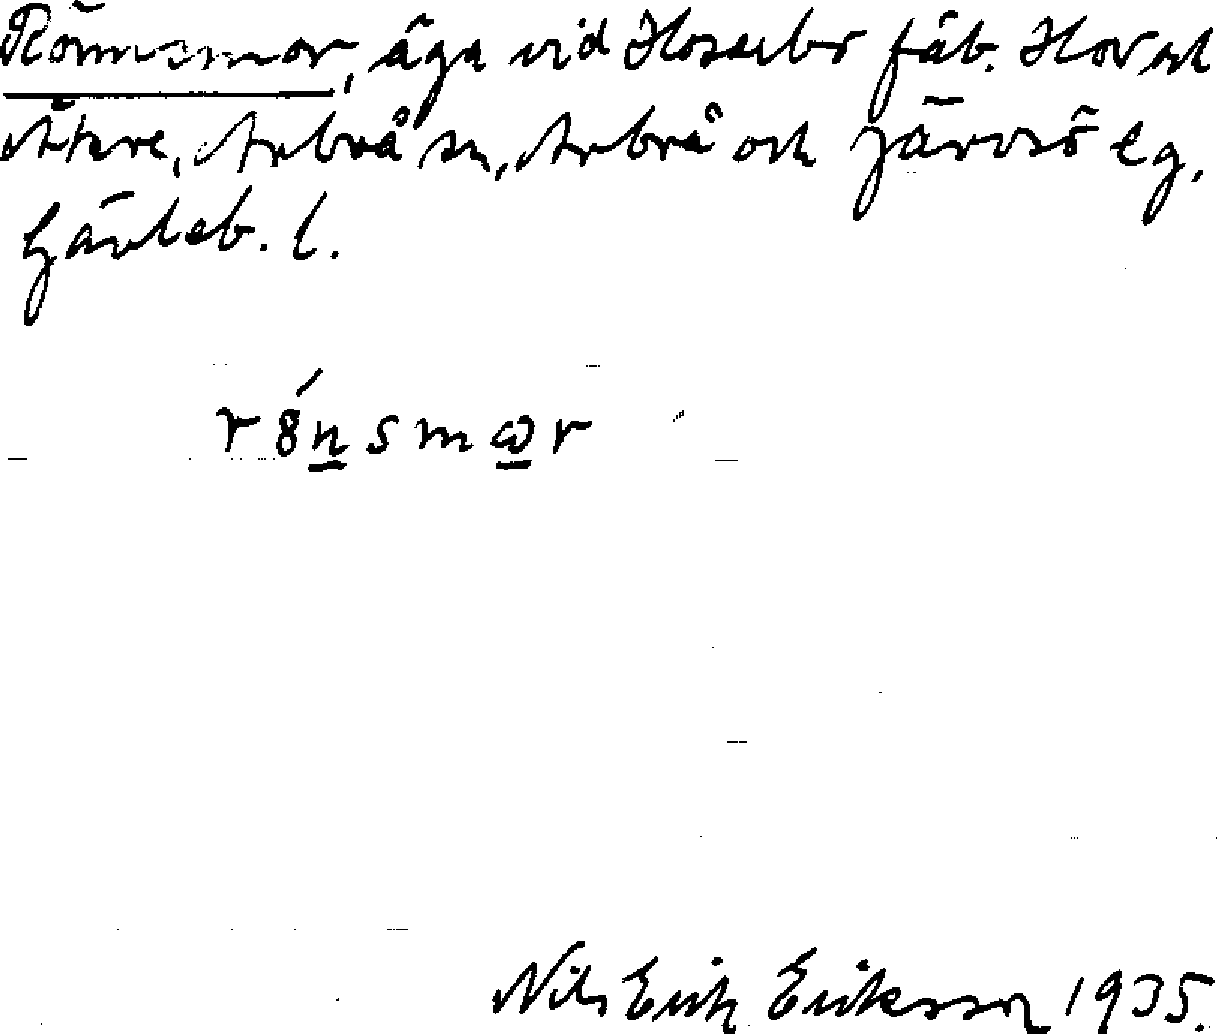 Rönnsmor, äga vid Hosarbo fäb. Hov och
Åkre, Arbrå sn, Arbrå och Järvsö tg,
Gävleb. l.
rö́nsmɷr
Nils Erik Eriksson 1935.